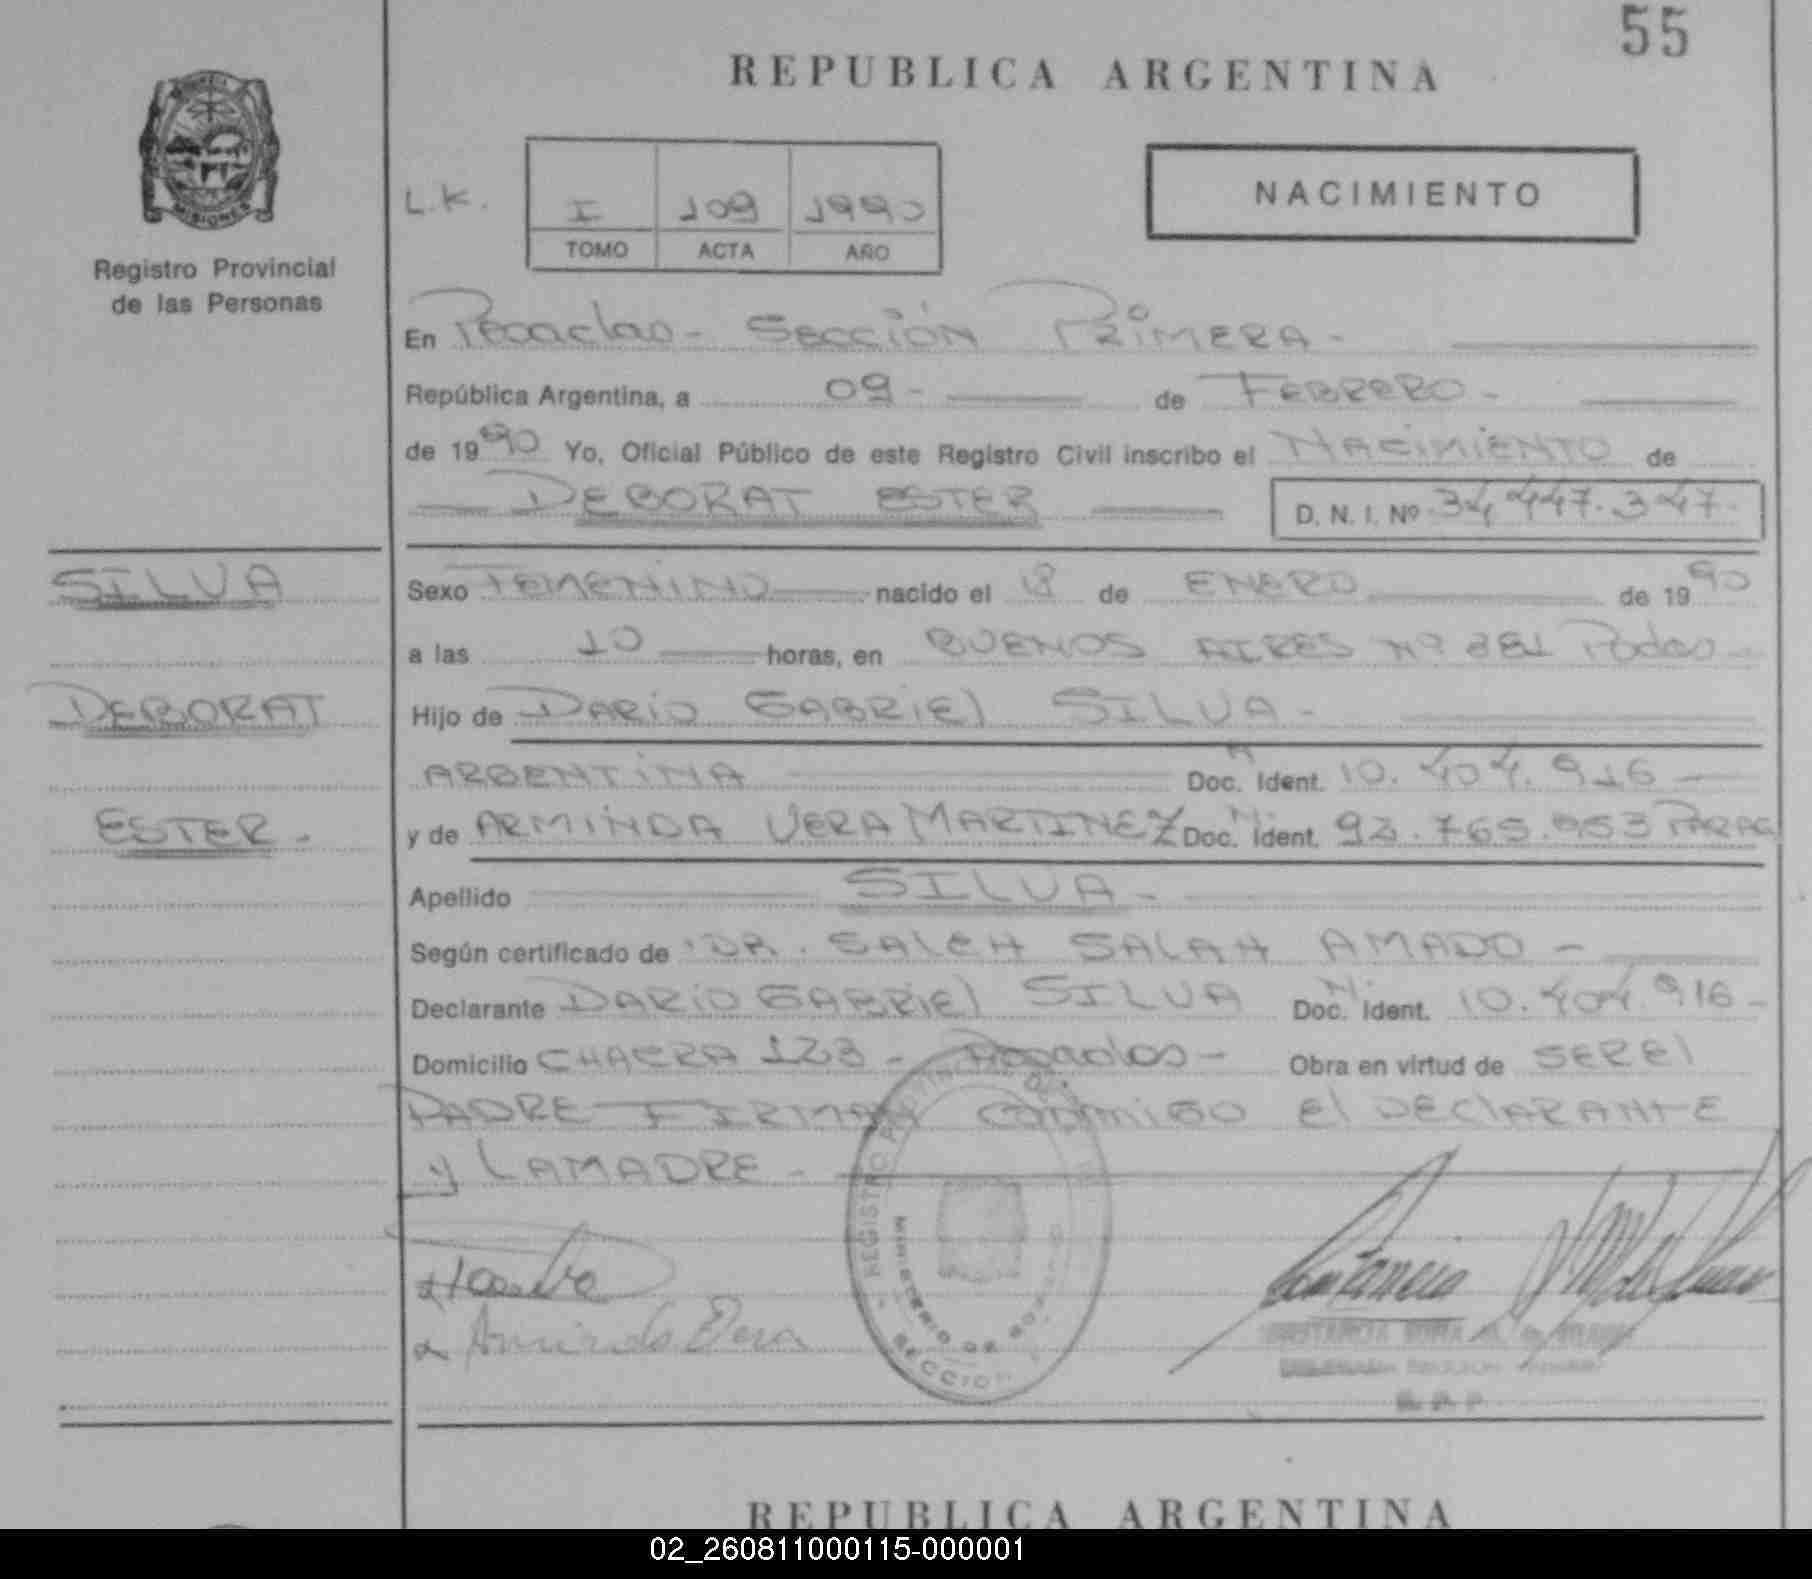 55
REPUBLICA ARGENTINA
MISIONES
Registro Provincial
de las Personas
L.K.
I 109 1990
TOMO ACTA AÑO
NACIMIENTO
En Posadas - SECCIÓN PRIMERA -
República Argentina, a 09 - de FEBRERO -
de 1990 Yo, Oficial Público de este Registro Civil inscribo el NACIMIENTO de
DEBORAT ESTER D. N. I. Nº 34.447.347-
SILVA
DEBORAT
ESTER -
Sexo FEMENINO nacido el 18 de ENERO de 1990
a las 10 horas, en BUENOS AIRES Nº 381 Podas -
Hijo de DARIO GABRIEL SILVA -
ARGENTINA Doc. Ident. 10.404.916 -
y de ARMINDA VERA MARTINEZ Doc. Ident. 92.765.953 PARAG
Apellido SILVA -
Según certificado de DR. SALEH SALAH AMADO -
Declarante DARIO GABRIEL SILVA Doc. Ident. 10.404.916 -
Domicilio CHACRA 123 - Posadas - Obra en virtud de SER El
PADRE FIRMAN CONMIGO El DECLARANTE
y LA MADRE -
Arminda Vera
REGISTRO PROVINCIAL DE
MINISTERIO DE GOBIERNO
SECCION
REPUBLICA ARGENTINA
02_260811000115-000001